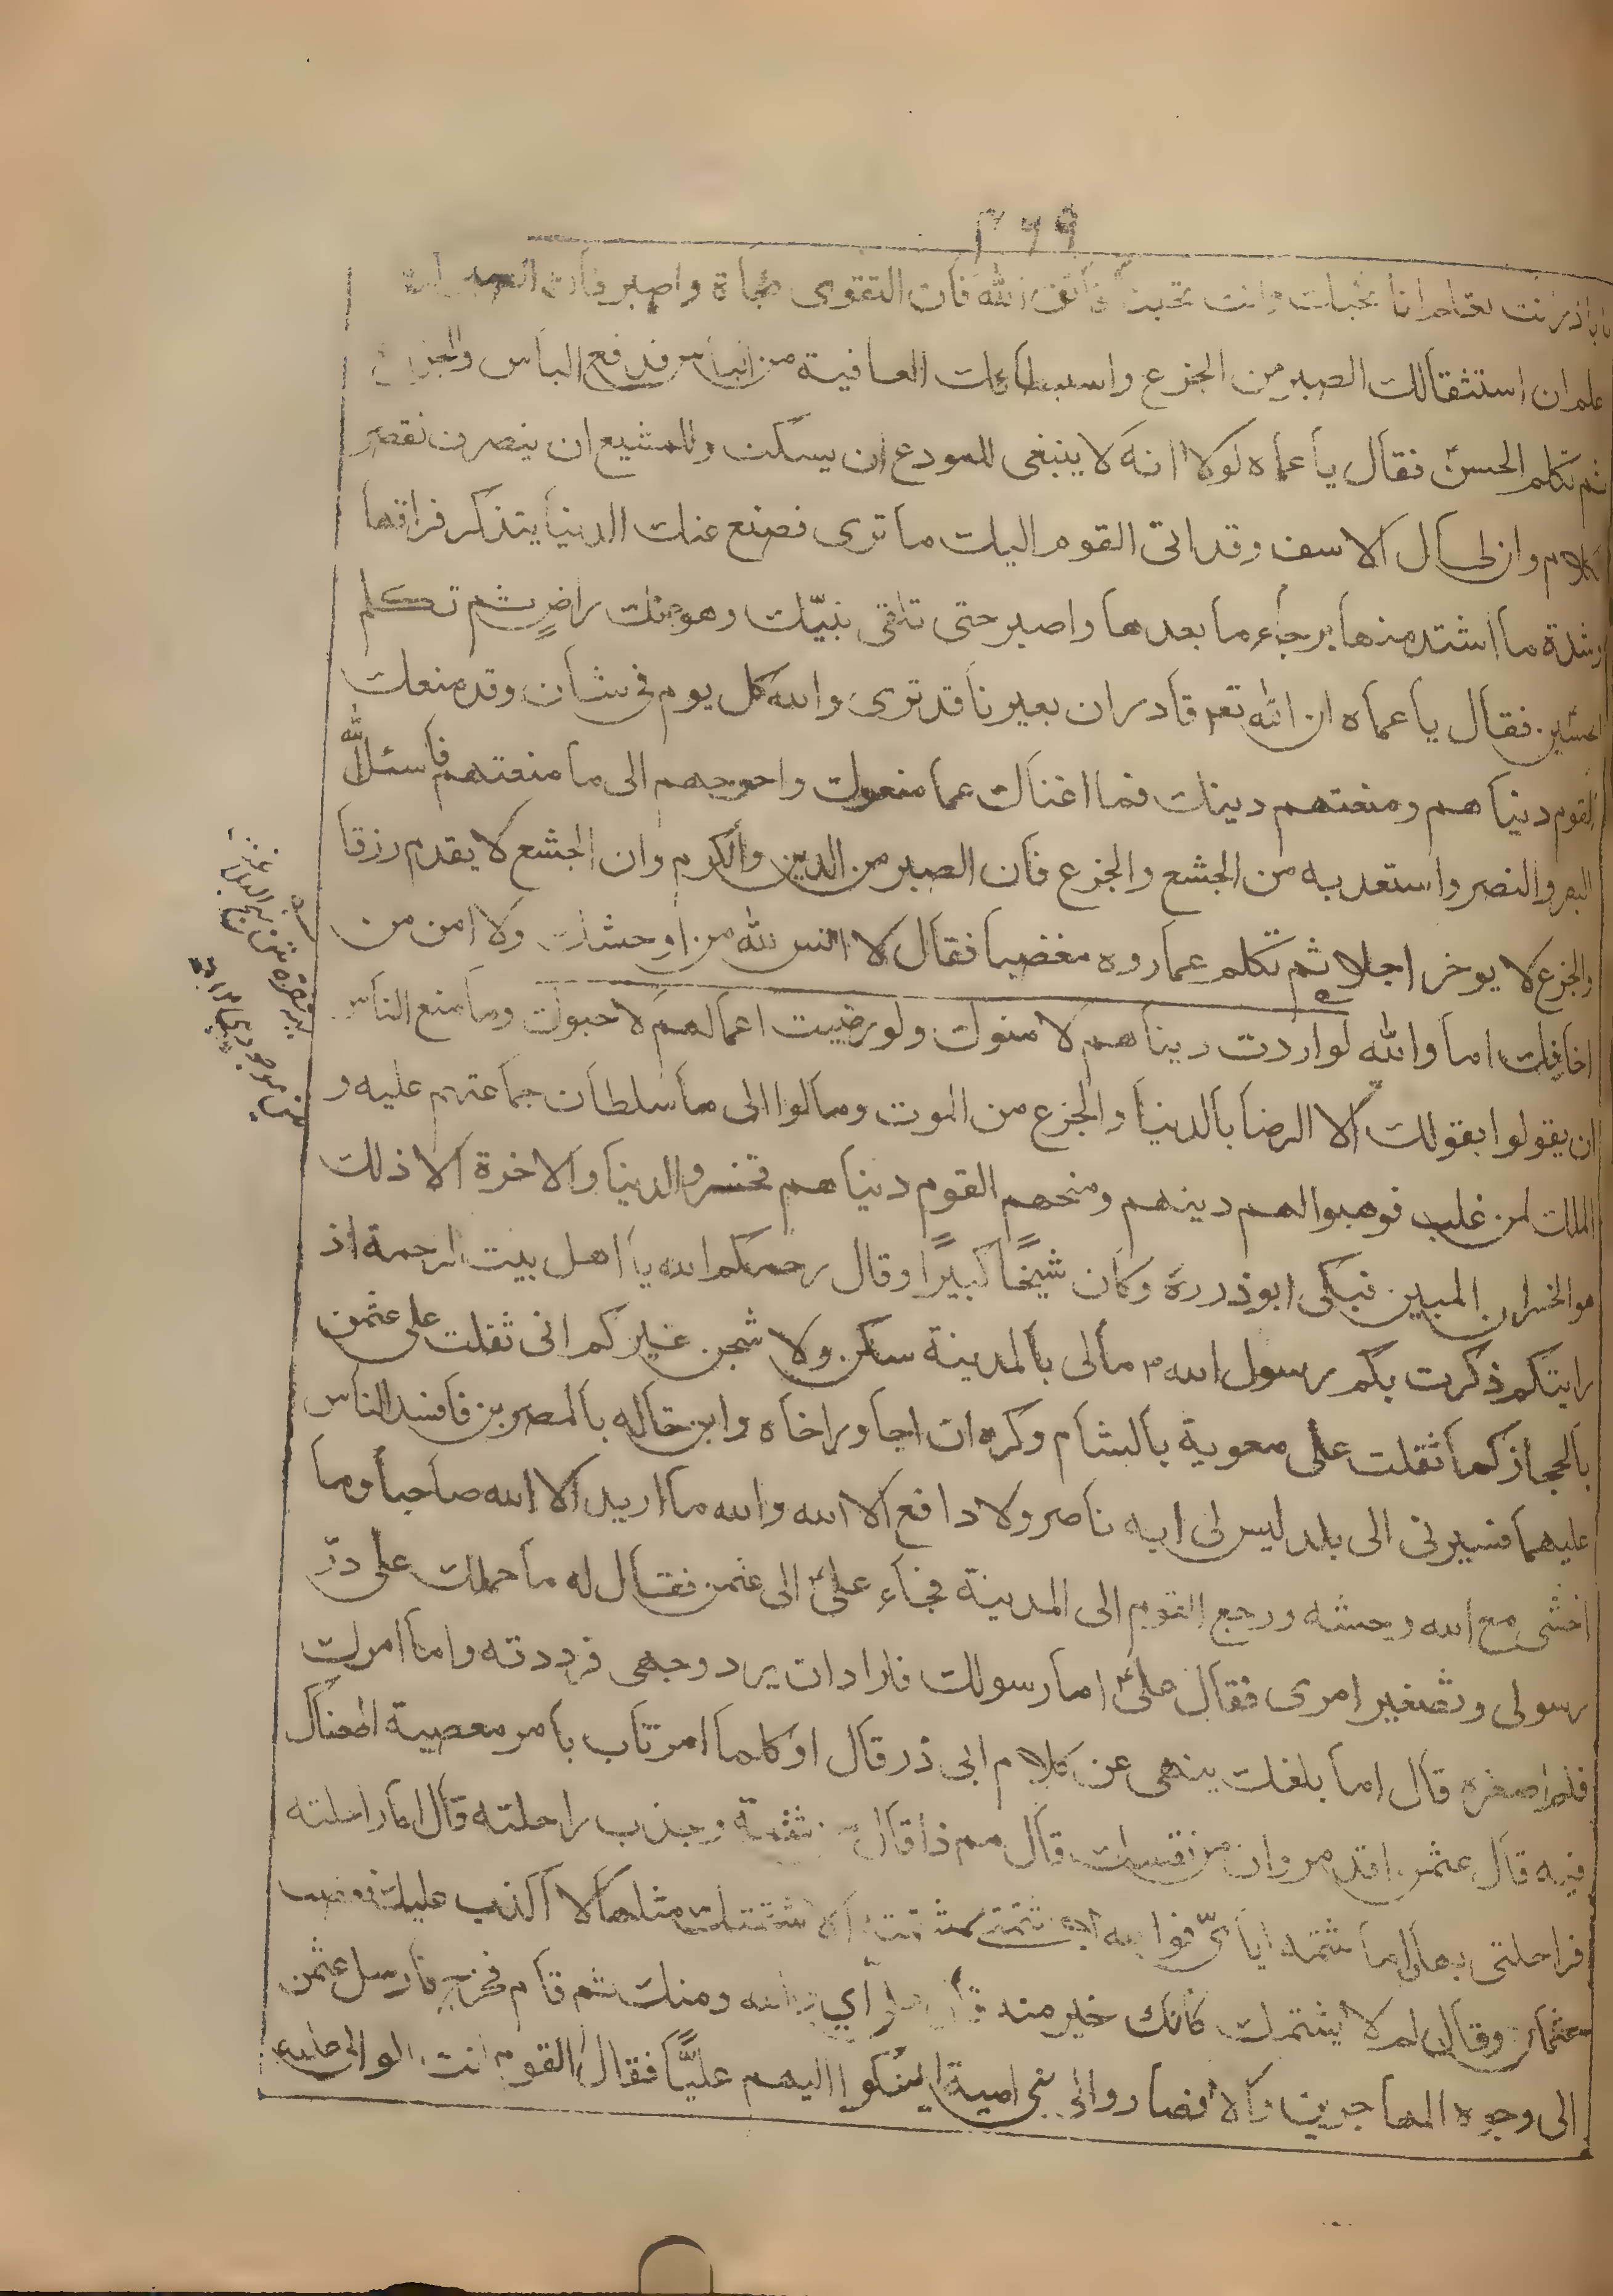 ٣٦٩
انت تعلم انا نحبك وانت تحبنا فاتق الله فان التقوى نجاة واصبر فان
علم ان استثقالك الصبر من الجزع واستبطاءك العافية من الياس فدع الياس والجزع
ثم تكلم الحسن فقال يا عماه لولا انه لا ينبغى للمودع ان يسكت وللمشيع ان ينصرف لقصر
الكلام وان طال الاسف وقد اتى القوم اليك ما ترى فضع عنك الدنيا بتذكر فراقها
وشدة ما اشتد منها برجاء ما بعدها واصبر حتى تلقى نبيّك وهو عنك راضٍ ثم تكلم
الحسين فقال يا عماه ان الله تعم قادر ان يغير ما قد ترى والله كل يوم فى شان وقد منعك
القوم دنياهم ومنعتهم دينك فما اغناك عما منعوك واحوجهم الى ما منعتهم فاسئل الله
الصبر والنصر واستعذ به من الجشع والجزع فان الصبر من الدين والكرم وان الجشع لا يقدم رزقا
والجزع لا يوخر اجلا ثم تكلم عمار ره مغضبا فقال لا انس الله من اوحشك ولا امن من
اخافك اما والله لو اردت دنياهم لامنوك ولو رضيت اعمالهم لاحبوك وما منع الناس
ان يقولوا بقولك الا الرضا بالدنيا والجزع من الموت ومالوا الى ما سلطان جماعتهم عليه و
الملك لمن غلب فوهبوا لهم دينهم ومنحهم القوم دنياهم فخسروا الدنيا والاخرة الا ذلك
هو الخسران المبين فبكى ابوذر ره وكان شيخًا كبيرًا وقال رحمكم الله يا اهل بيت الرحمة اذ
رايتكم ذكرت بكم رسول الله ص مالى بالمدينة سكن ولا شجن غيركم انى ثقلت على عثمن
بالحجاز كما ثقلت على معوية بالشام وكره ان اجاور اخاه وابن خاله بالمصرين فافسد الناس
عليهما فسيرنى الى بلد ليس لى به ناصر ولا دافع الا الله والله ما اريد الا الله صاحبا وما
اخشى مع الله وحشة ورجع القوم الى المدينة فجاء علىّ الى عثمن فقال له ما حملك على ردّ
رسولى وتصغير امرى فقال علىّ اما رسولك فاراد ان يرد وجهى فرددته واما امرك
فلم اصغره قال اما بلغك ينهى عن كلام ابى ذر قال اوكلما امرتاب بامر معصية اطعناك
فيه قال عثمن اقد مروان من نفسك قال مم ذا قال من شتمه وجذب راحلته قال اما راحلته
فراحلتى بها واما شتمه اياىّ فوالله لا شتمنى شتمة الا شتمتك مثلها لا اكذب عليك فغضب
عثمان وقال لم لا يشتمك كانك خير منه قال على اي والله ومنك ثم قام فخرج فارسل عثمن
الى وجوه المهاجرين والانصار والى بنى امية يشكوا اليهم عليًّا فقال القوم انت الوالى عليه